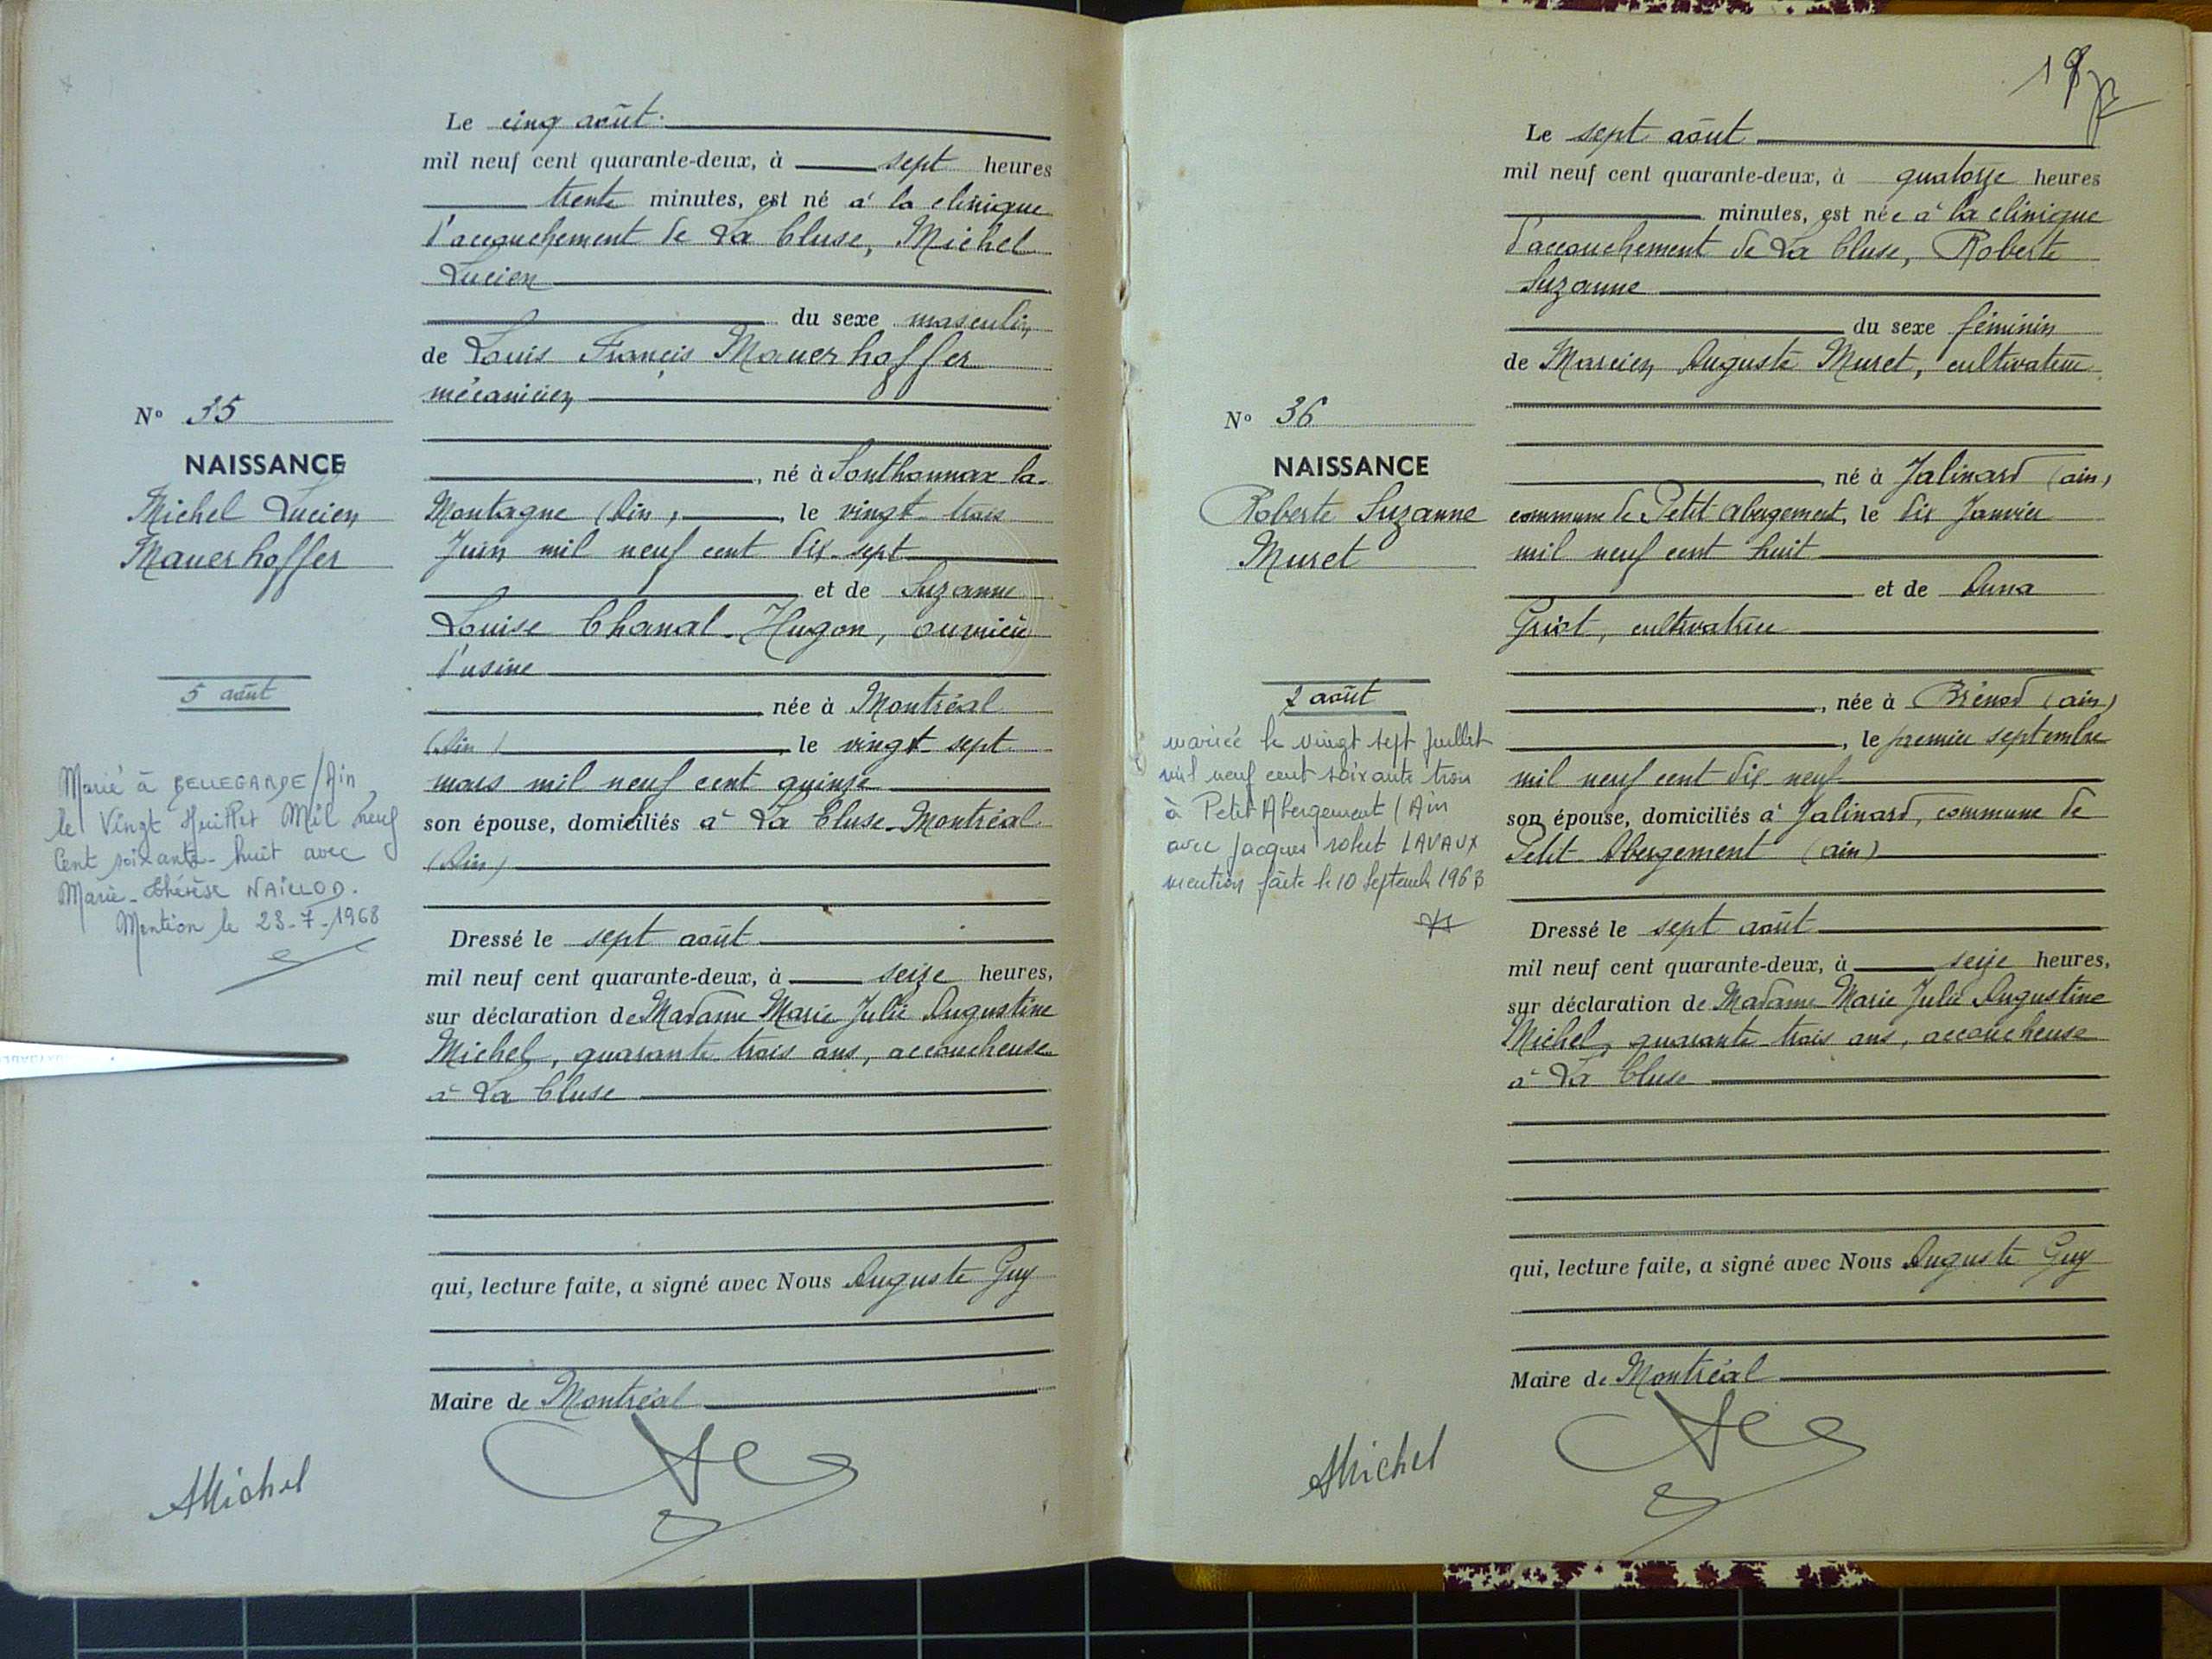 Le cinq août.
mil neuf cent quarante-deux, à sept heures
trente minutes, est né à la clinique
d'accouchement de La Cluse, Michel
Lucien
du sexe masculin
de Louis Francis Mauerhoffer
mécanicien
, né à Sonthonnax la-
Montagne (Ain), le vingt trois
Juin mil neuf cent dix-sept
et de Suzanne
Louise Chanal-Hugon, ouvrière
d'usine
née à Montréal
(Ain), le vingt sept
mars mil neuf cent quinze
son épouse, domiciliés à La Cluse-Montréal
(Ain)
Dressé le sept août
mil neuf cent quarante-deux, à seize heures,
sur déclaration de Madame Marie Julie Augustine
Michel, quarante trois ans, accoucheuse
à La Cluse
qui, lecture faite, a signé avec Nous Auguste Guy
Maire de Montréal
N° 35
NAISSANCE
Michel Lucien
Mauerhoffer
5 août
Marié à BELLEGARDE/Ain
le Vingt Juillet Mil neuf
Cent soixante-huit avec
Marie-Thérèse NAILLOD.
Mention le 23-7-1968
AMichel
Le sept août
mil neuf cent quarante-deux, à quatorze heures
minutes, est née à la clinique
d'accouchement de La Cluse, Roberte
Suzanne
du sexe féminin
de Marcien Auguste Muret, cultivateur
né à Jalinard (ain)
commune de Petit Abergement, le dix Janvier
mil neuf cent huit
et de Anna
Griot, cultivatrice
, née à Brénod (ain)
, le premier septembre
mil neuf cent dix-neuf
son épouse, domiciliés à Jalinard, commune de
Petit-Abergement (ain)
Dressé le sept août
mil neuf cent quarante-deux, à seize heures,
sur déclaration de Madame Marie Julie Augustine
Michel, quarante-trois ans, accoucheuse
à La Cluse
qui, lecture faite, a signé avec Nous Auguste Guy
Maire de Montréal
N° 36
NAISSANCE
Roberte Suzanne
Muret
7 août
mariée le vingt sept juillet
mil neuf cent soixante trois
à Petit Abergement/Ain
avec Jacques robert LAVAUX
mention faite le 10 Septemb 1963
AMichel